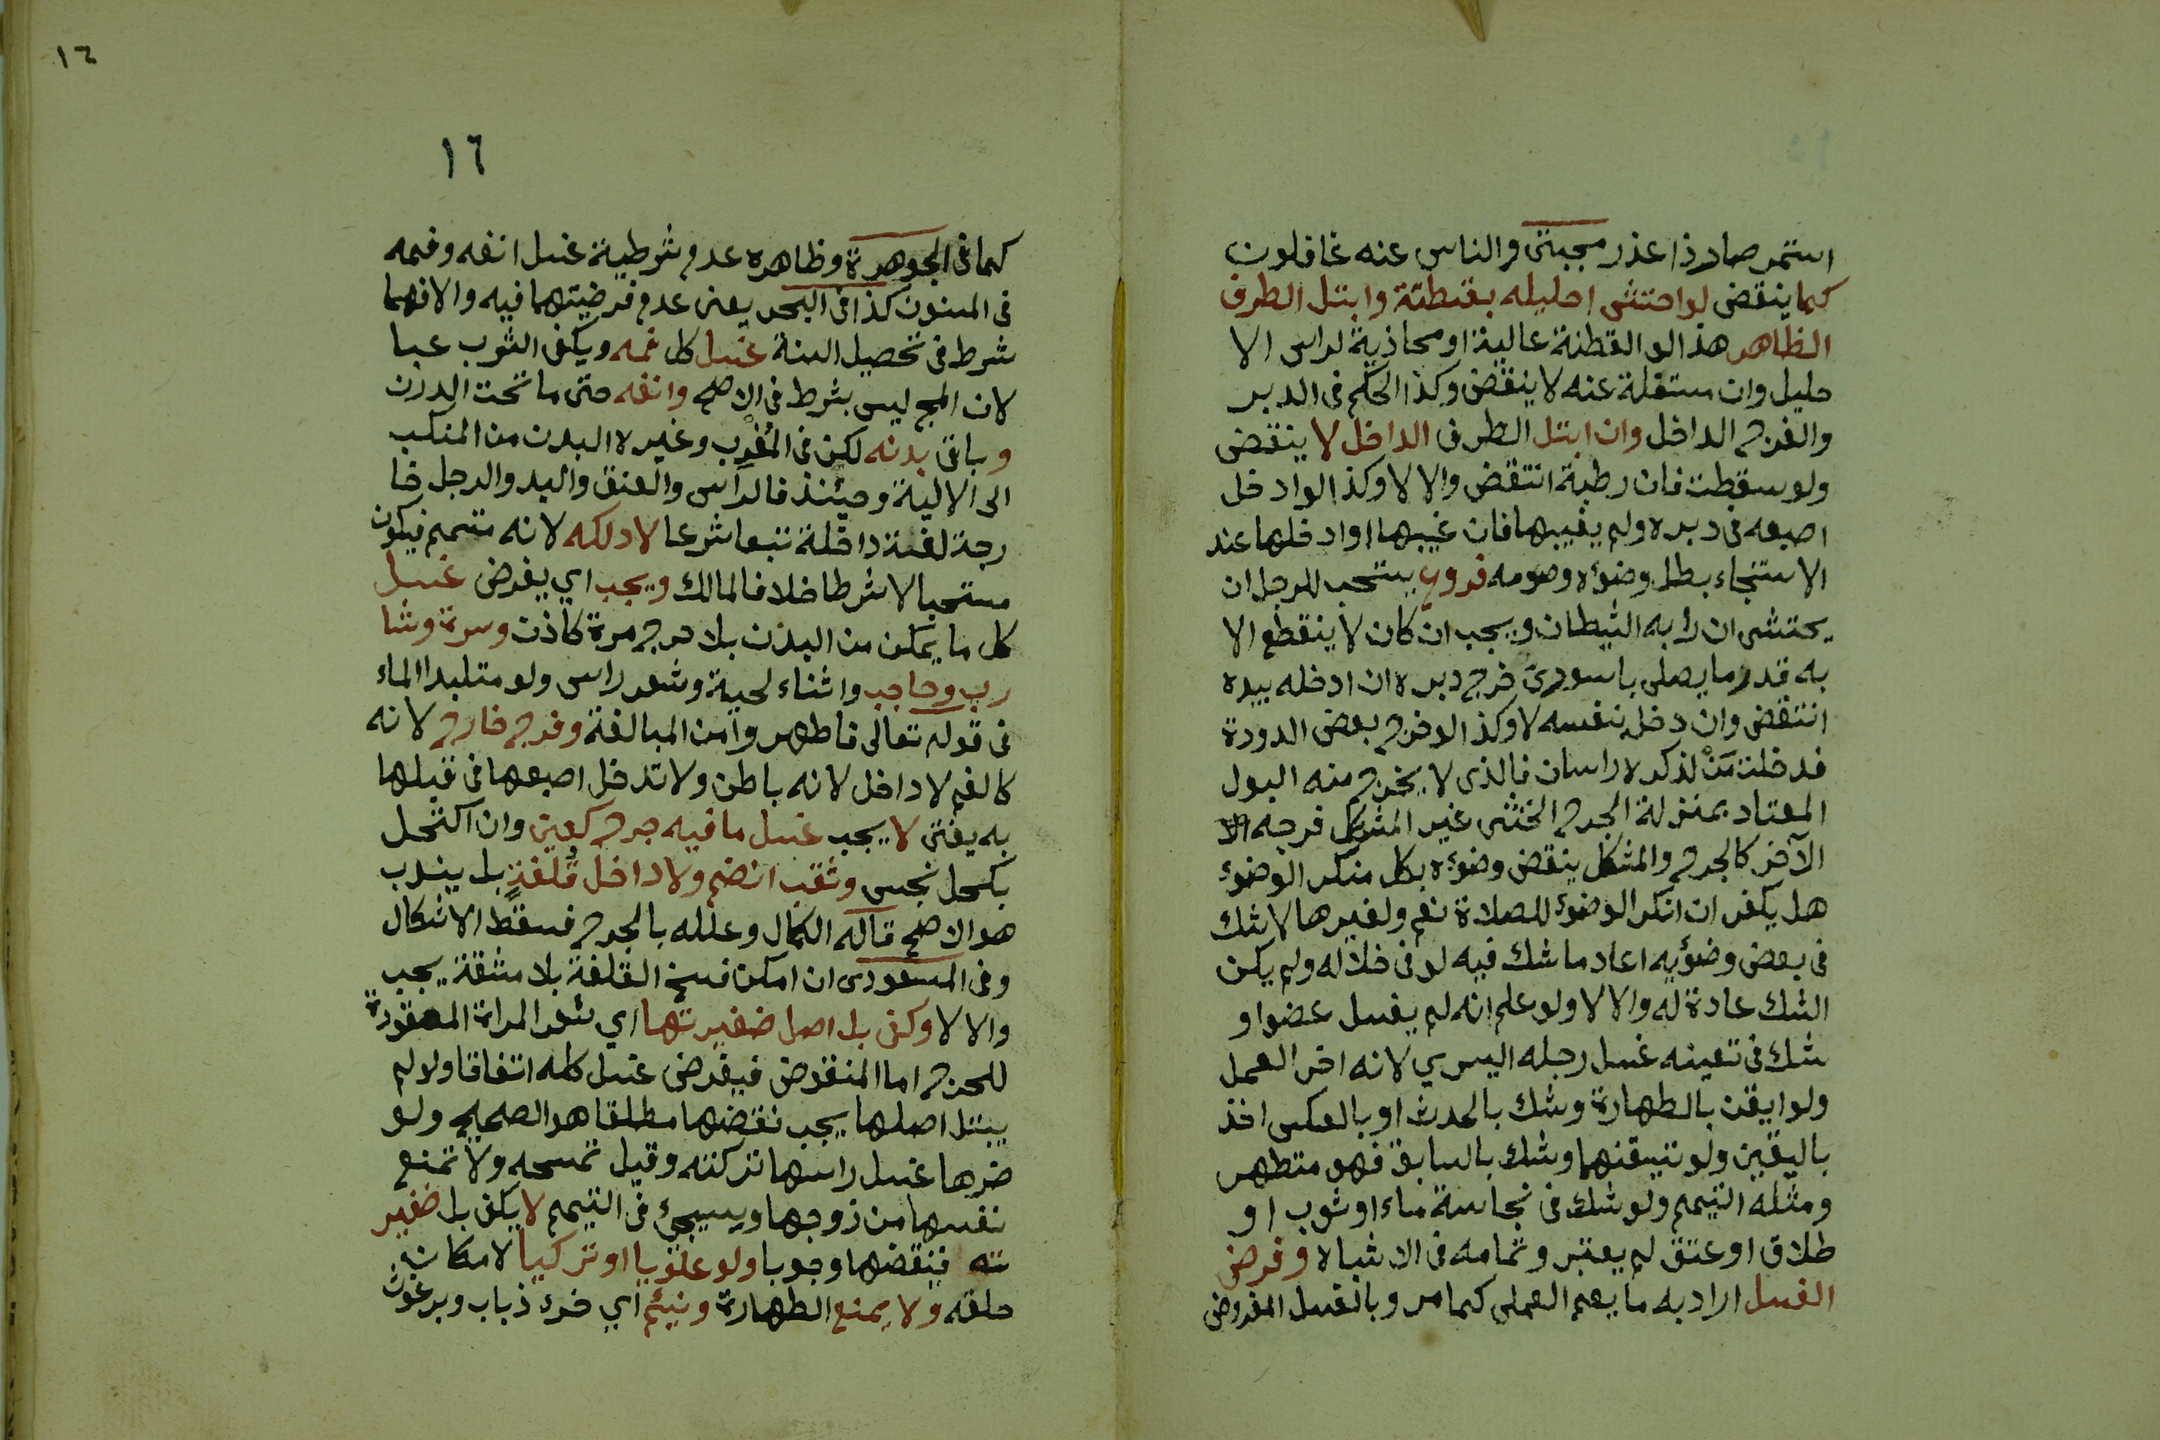 استمر صار ذا عذر مجبتى والناس عنه غافلون
كما ينقض لو احتشى احليله بقطنة وابتل الطرف
الظاهر هذا لو القطنة عالية او محاذية لراس الا
حليل وان متسفلة عنه لا ينقض وكذا الحكم في الدبر
والفرج الداخل وان ابتل الطرف الداخل لا ينقض
ولو سقطت فان رطبة انتقض والا لا وكذا لو ادخل
اصبعه في دبره ولم يغيبها فان غيبها او ادخلها عند
الاستنجاء بطل وضوءه وصومه فروع يستحب للرجل ان
يحتشى ان رابه الشيطان ويجب ان كان لا ينقطع الا
به قدر ما يصلى باسورى خرج دبره ان ادخله بيده
انتقض وان دخل بنفسه لا وكذا لو خرج بعض الدودة
فدخلت من لذكره راسان فالذى لا يخرج منه البول
المعتاد بمنزلة الجرح الخنثى غير المشكل فرجه
الآخر كالجرح والمشكل ينقض وضوءه بكل منكر الوضوء
هل يكفر ان انكر الوضوء للصلاة نعم ولغيرها لا شك
في بعض وضوئه اعاد ما شك فيه لو في خلاله ولم يكن
الشك عادة له والا لا ولو علم انه لم يغسل عضوا و
شك في تعينه غسل رجله اليسري لانه اخر العمل
ولو ايقن بالطهارة وشك بالحدث او بالعكس اخذ
باليقين ولو تيقنهما وشك بالسابق فهو متطهر
ومثله التيمم ولو شك في نجاسة ماء او ثوب او
طلاق او عتق لم يعتبر وتمامه في الاشباه وفرض
الغسل اراد به ما يعم العملى كما مر وبالغسل المفروض
١٦
١٦
كما في الجوهرة وظاهره عدم شرطية غسل انفه وفمه
في المسنون كذا في البحر يعنى عدم فرضيتهما فيه والا فهما
شرط في تحصيل السنة غسل كل فمه ويكفى الشرب عبا
لان المج ليس بشرط في الاصح وانفه حتى ما تحت الدرن
وباقى بدنه لكن في المغرب وغيره البدن من المنكب
الى الالية وحيئنذ فالراس والعنق واليد والرجل خا
رجة لغة داخلة تبعا شرعا لا دلكه لانه متمم فيكون
مستحبا لا شرطا خلافا لمالك ويجب اي يفرض غسل
كل ما يمكن من البدن بلا حرج مرة كاذن وسرة وشا
رب وحاجب واثناء لحية وشعر راس ولو متلبدا الماء
في قوله تعالى فاطهروا من المبالغة وفرج خارج لانه
كالفم لا داخل لانه باطن ولا تدخل اصبعها في قبلها
به يفتى لا يجب غسل ما فيه حرج كعين وان اكتحل
بكحل نجس وثقب انضم ولا داخل قلفة بل يندب
هو الاصح قاله الكمال وعلله بالحرج فسقط الاشكال
وفي المسعودى ان امكن فسخ القلفة بلا مشقة يجب
والا لا وكفى بل اصل ضفيرتها اي شعر المراة المعقودة
للحرج اما المنقوض فيفرض غسل كله اتفاقا ولو لم
يبتل اصلها يجب نقضها مطلقا هو الصحيح ولو
ضرها غسل راسها تركته وقيل تمسحه ولا تمنع
نفسها من زوجها ويسيجئ في التيمم لا يكفى بل ضفير
ته فينقضها وجوبا ولو علويا او تركيا لامكان
حلقه ولا يمنع الطهارة ونيئم اي خرء ذباب وبرغوث